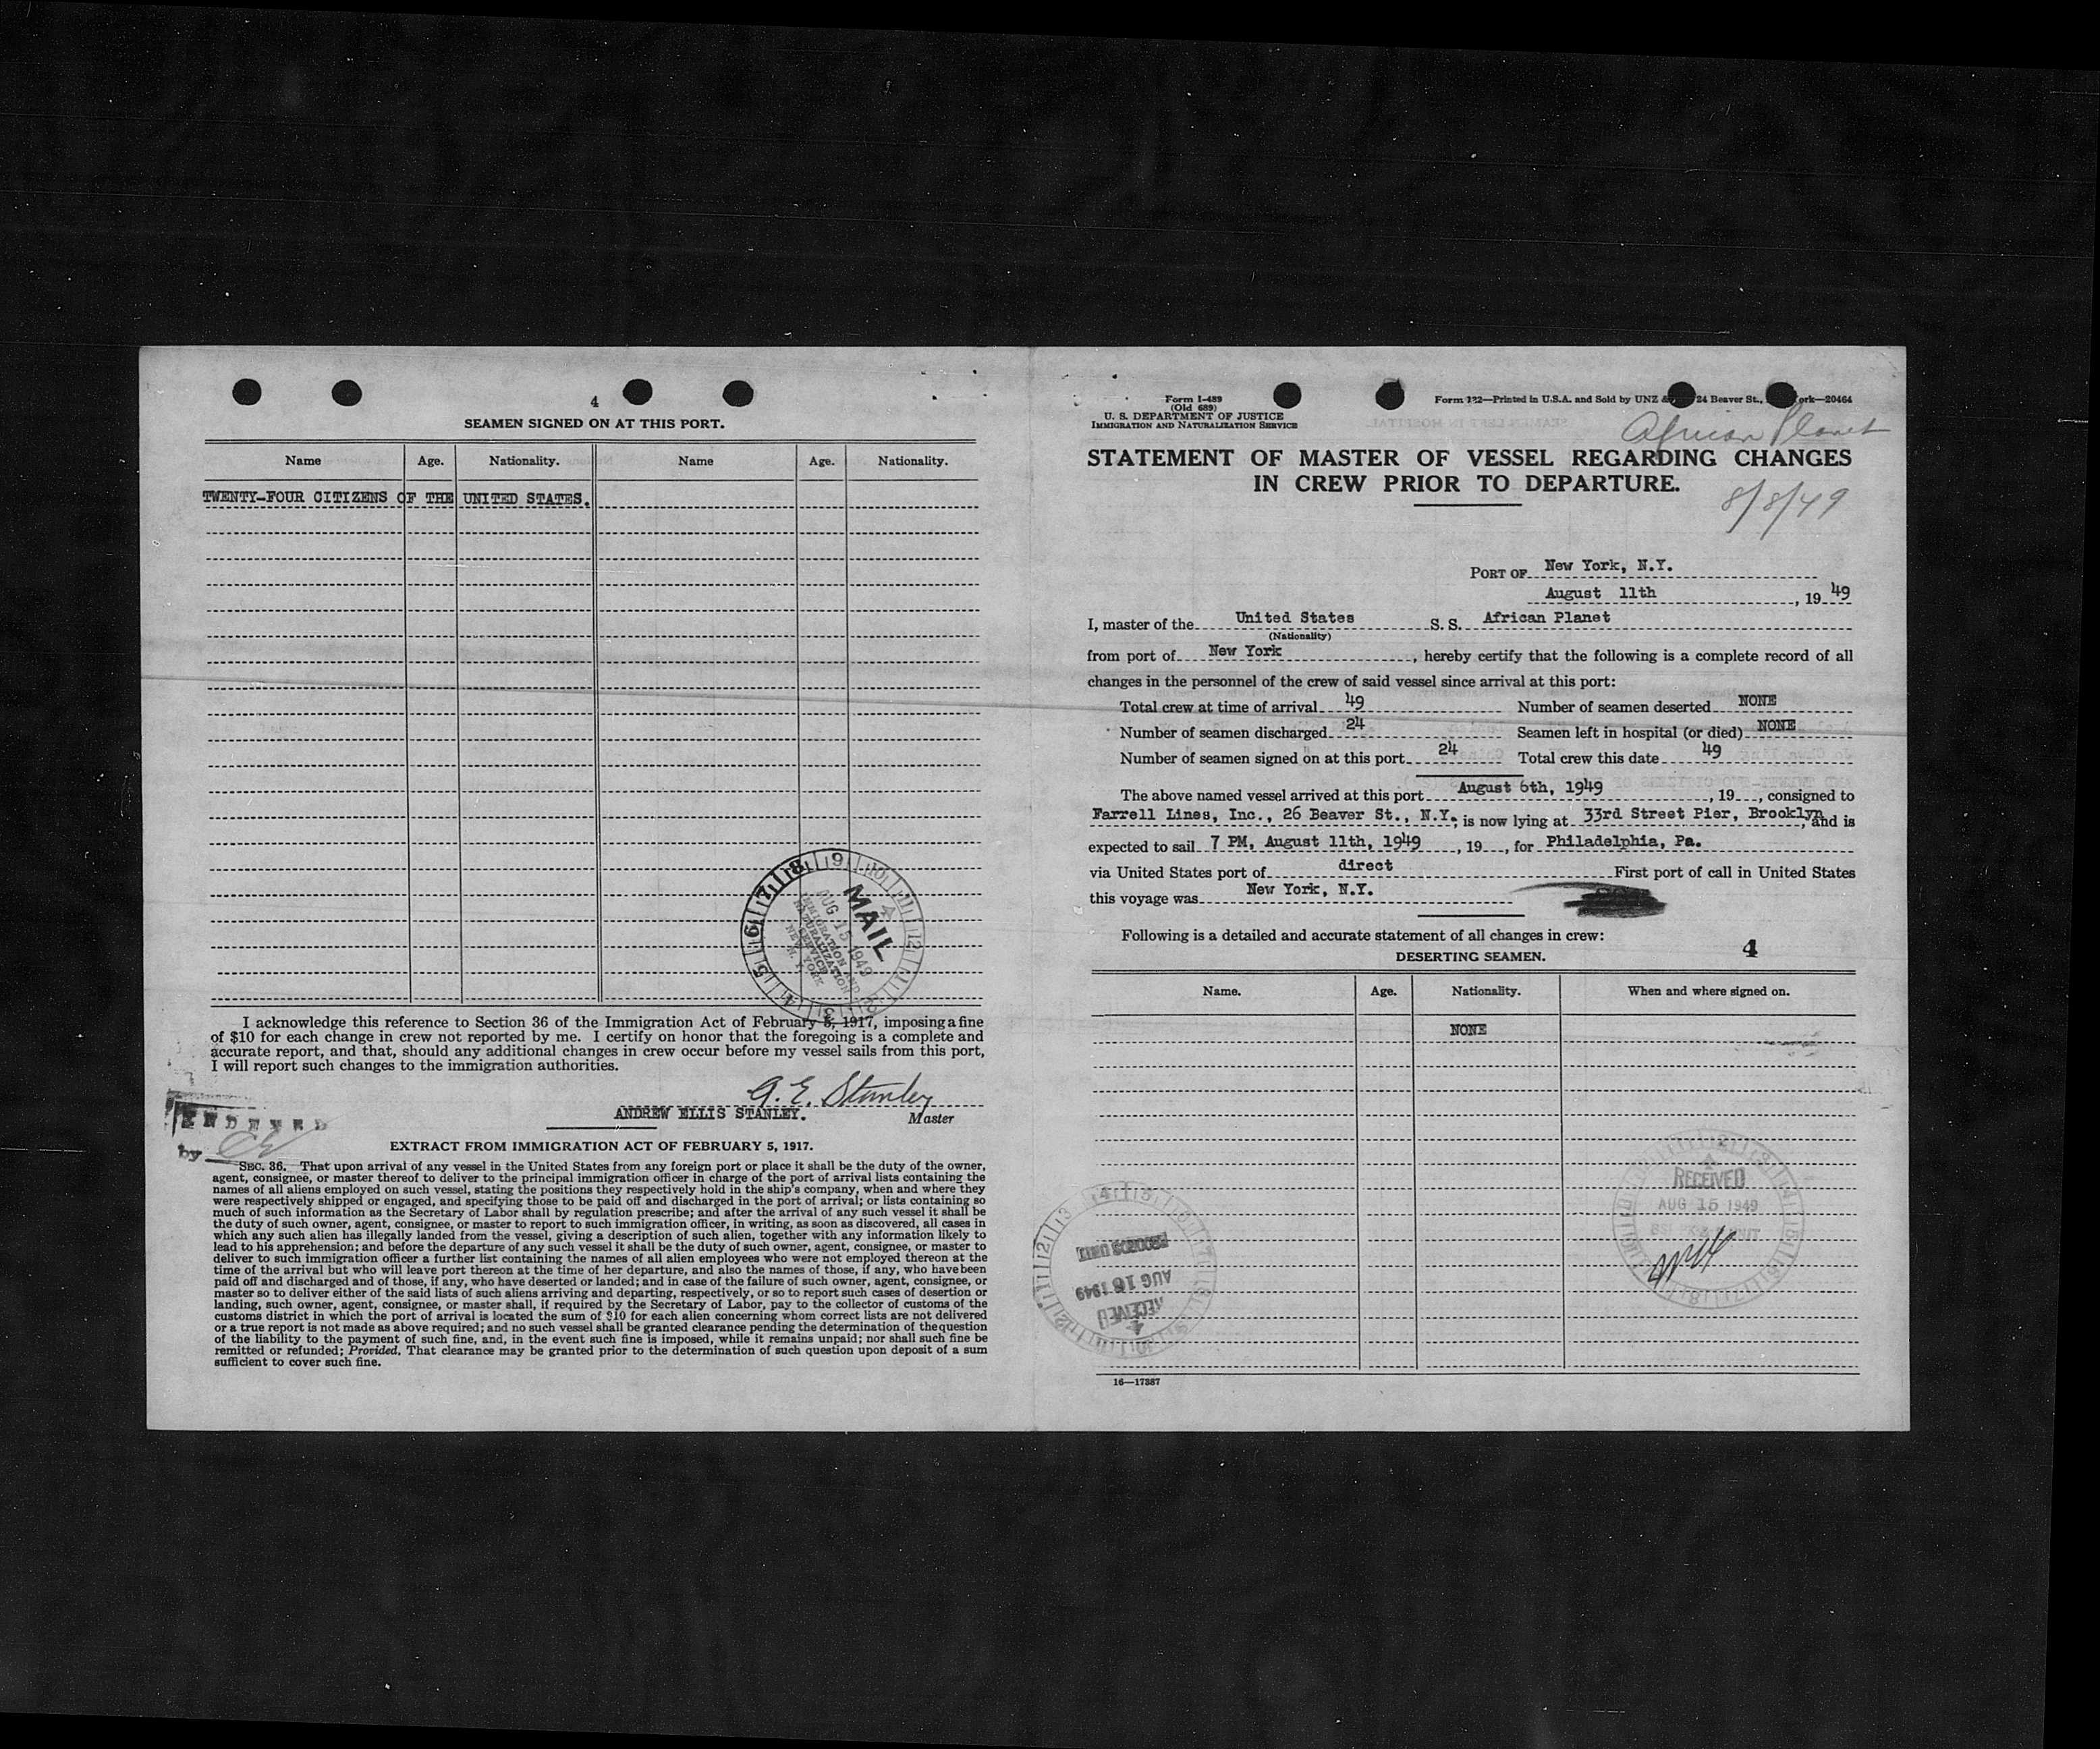 4
SEAMEN SIGNED ON AT THIS PORT.
Name Age. Nationality. Name Age. Nationality.
TWENTY-FOUR CITIZENS OF THE UNITED STATES.
MAIL
AUG 15 1949
IMMIGRATION AND
NATURALIZATION
SERVICE
NEW YORK
N. Y.
I acknowledge this reference to Section 36 of the Immigration Act of February 5, 1917, imposing a fine
of $10 for each change in crew not reported by me. I certify on honor that the foregoing is a complete and
accurate report, and that, should any additional changes in crew occur before my vessel sails from this port,
I will report such changes to the immigration authorities.
A. E. Stanley
ANDREW ELLIS STANLEY.
Master
by
EXTRACT FROM IMMIGRATION ACT OF FEBRUARY 5, 1917.
SEC. 36. That upon arrival of any vessel in the United States from any foreign port or place it shall be the duty of the owner,
agent, consignee, or master thereof to deliver to the principal immigration officer in charge of the port of arrival lists containing the
names of all aliens employed on such vessel, stating the positions they respectively hold in the ship's company, when and where they
were respectively shipped or engaged, and specifying those to be paid off and discharged in the port of arrival; or lists containing so
much of such information as the Secretary of Labor shall by regulation prescribe; and after the arrival of any such vessel it shall be
the duty of such owner, agent, consignee, or master to report to such immigration officer, in writing, as soon as discovered, all cases in
which any such alien has illegally landed from the vessel, giving a description of such alien, together with any information likely to
lead to his apprehension; and before the departure of any such vessel it shall be the duty of such owner, agent, consignee, or master to
deliver to such immigration officer a further list containing the names of all alien employees who were not employed thereon at the
time of the arrival but who will leave port thereon at the time of her departure, and also the names of those, if any, who have been
paid off and discharged and of those, if any, who have deserted or landed; and in case of the failure of such owner, agent, consignee, or
master so to deliver either of the said lists of such aliens arriving and departing, respectively, or so to report such cases of desertion or
landing, such owner, agent, consignee, or master shall, if required by the Secretary of Labor, pay to the collector of customs of the
customs district in which the port of arrival is located the sum of $10 for each alien concerning whom correct lists are not delivered
or a true report is not made as above required; and no such vessel shall be granted clearance pending the determination of the question
of the liability to the payment of such fine, and, in the event such fine is imposed, while it remains unpaid; nor shall such fine be
remitted or refunded; Provided, That clearance may be granted prior to the determination of such question upon deposit of a sum
sufficient to cover such fine.
Form I-489
(Old 689)
U. S. DEPARTMENT OF JUSTICE
IMMIGRATION AND NATURALIZATION SERVICE
Form 122—Printed in U.S.A. and Sold by UNZ & 24 Beaver St., ork—20464
African Planet
STATEMENT OF MASTER OF VESSEL REGARDING CHANGES
IN CREW PRIOR TO DEPARTURE.
8/8/49
PORT OF New York, N.Y.
August 11th, 1949
I, master of the United States S. S. African Planet
(Nationality)
from port of New York, hereby certify that the following is a complete record of all
changes in the personnel of the crew of said vessel since arrival at this port:
Total crew at time of arrival 49 Number of seamen deserted NONE
Number of seamen discharged 24 Seamen left in hospital (or died) NONE
Number of seamen signed on at this port 24 Total crew this date 49
The above named vessel arrived at this port August 6th, 1949, 19, consigned to
Farrell Lines, Inc., 26 Beaver St., N.Y. is now lying at 33rd Street Pier, Brooklyn, and is
expected to sail 7 PM, August 11th, 1949, 19, for Philadelphia, Pa.
via United States port of direct First port of call in United States
this voyage was New York, N.Y.
Following is a detailed and accurate statement of all changes in crew:
4
DESERTING SEAMEN.
Name. Age. Nationality. When and where signed on.
NONE
RECEIVED
AUG 15 1949
RECORDS UNIT
AUG 16 1949
RECEIVED
16—17887